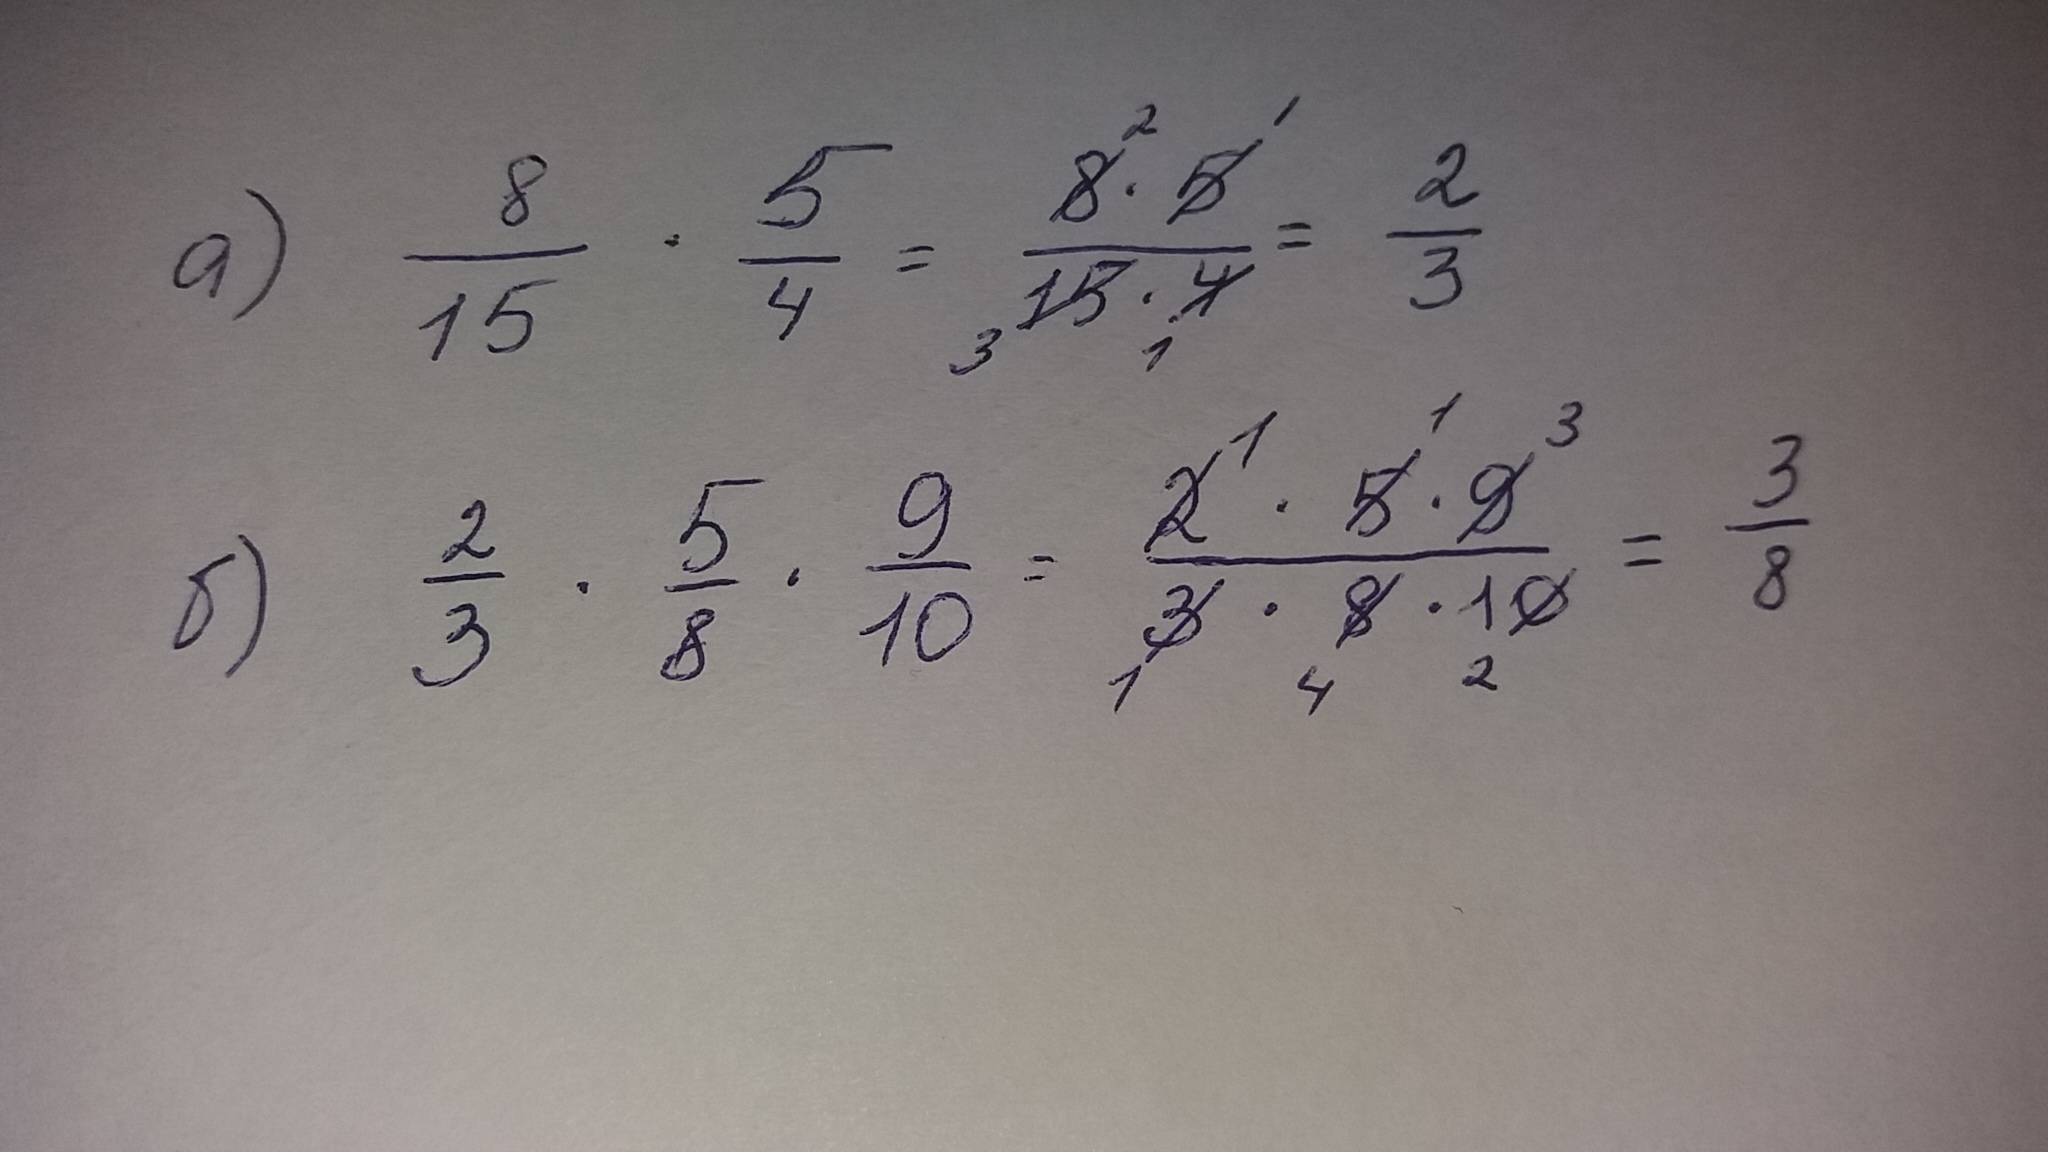 а) 8/15 · 5/4 = 8² · 5¹ / ₃15 · 4₁ = 2/3
б) 2/3 · 5/8 · 9/10 = 2¹ · 5¹ · 9³ / ₁3 · ₄8 · ₂10 = 3/8